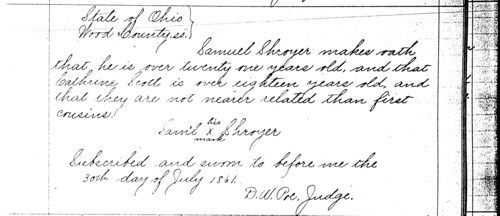 State of Ohio }
Wood County, ss. }
Samuel Shroyer makes oath
that, he is over twenty one years old, and that
Cathrine Scott is over eighteen years old, and
that they are not nearer related than first
cousins.
his
Saml X Shroyer
mark
Subscribed and sworn to before me the
30th day of July 1861.
D. W. Poe, Judge.